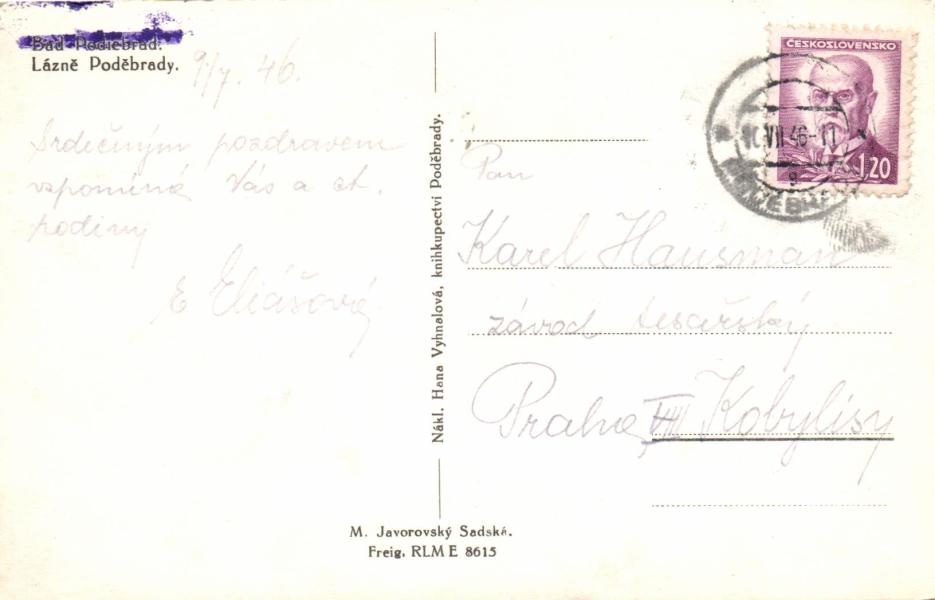 Bad Podiebrad.
Lázně Poděbrady.
9/7. 46.
Srdečným pozdravem
vzpomíná Vás a ct.
rodiny
E Eliášová
Nákl. Hana Vyhnalová, knihkupectví Poděbrady.
M. Javorovský Sadská.
Freig. RLM E 8615
ČESKOSLOVENSKO
1,20
10.VII.46-11
Pan
Karel Hausman
závod tesařský
Praha VIII Kobylisy